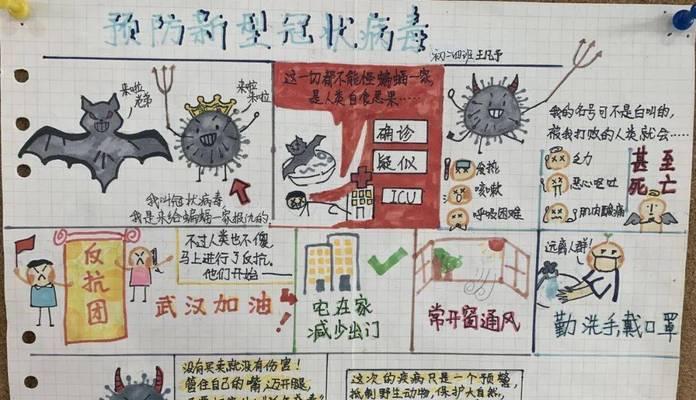 预防新型冠状病毒
初二四班
来啦
兄弟
来啦
来啦
我叫冠状病毒
我是来给蝙蝠一家报仇的
这一切都不能怪蝙蝠一家
是人类自食恶果……
确诊
疑似
ICU
我的名号可不是白叫的,
被我打败的人类就会……
发烧
咳嗽
呼吸困难
乏力
恶心呕吐
肌肉酸痛
甚至
死亡
反抗团
不过人类也不傻
马上进行了反抗。
他们开始——
武汉加油!
宅在家
减少出门
常开窗通风
远离人群!
勤洗手戴口罩
没有买卖就没有伤害!
管住自己的嘴,迈开腿
这次的疾病只是一个预警,
抵制野生动物,保护大自然,